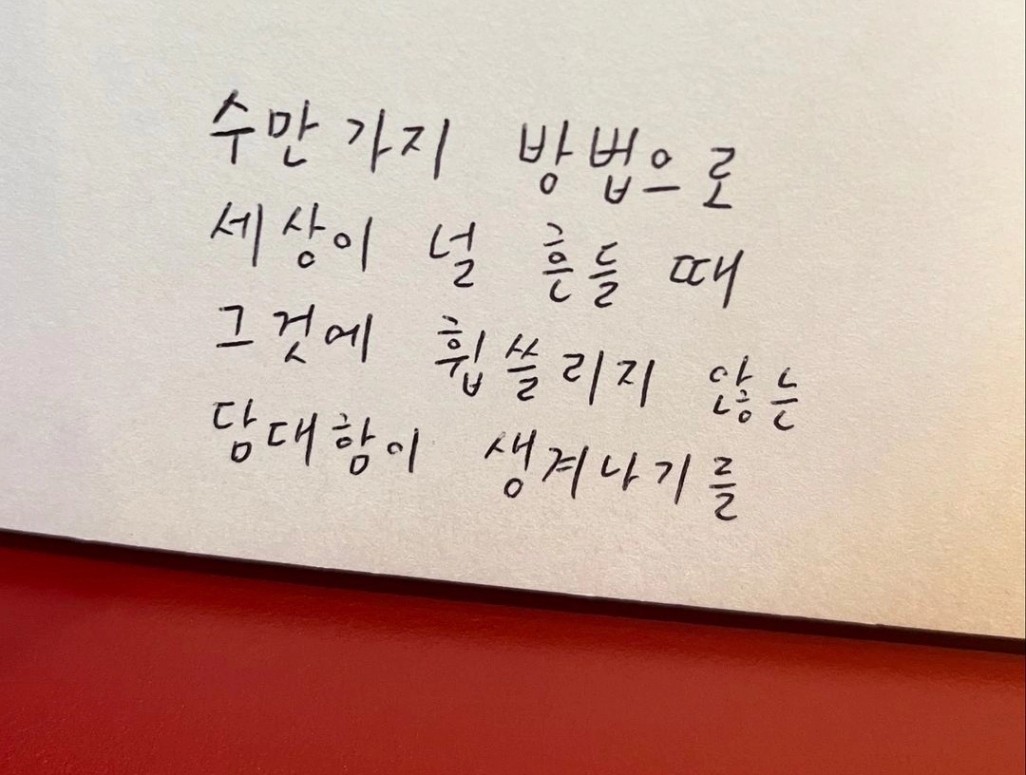 수만 가지 방법으로
세상이 널 흔들 때
그것에 휩쓸리지 않는
담대함이 생겨나기를